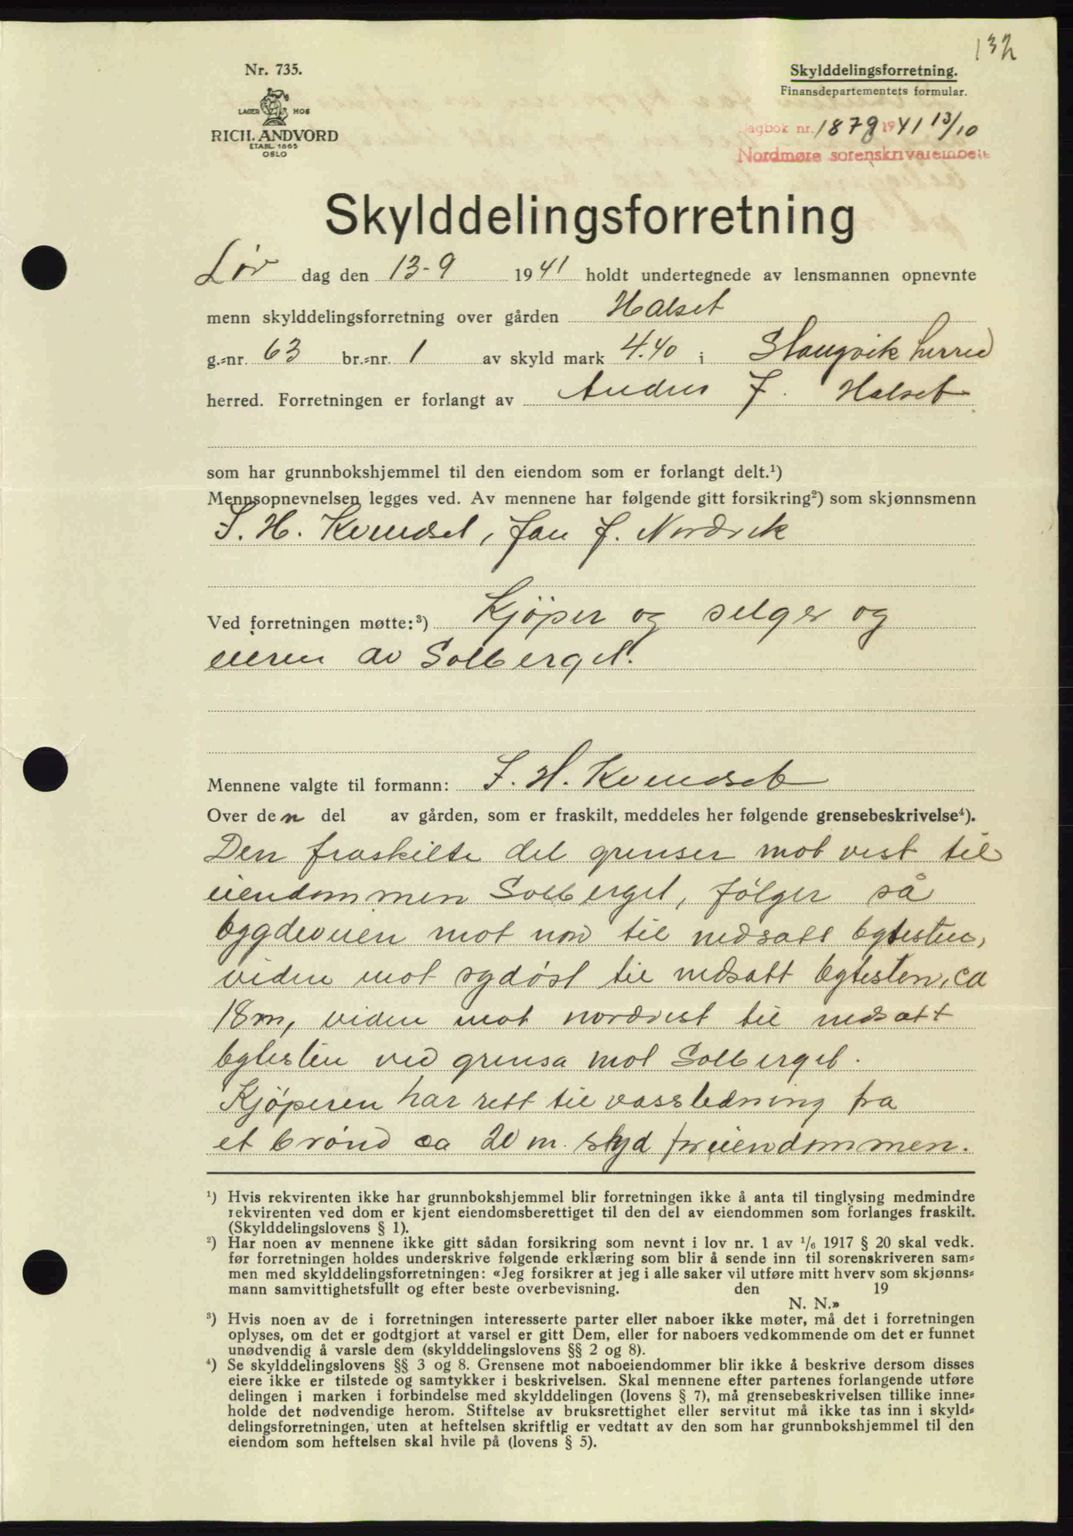 132
Nr. 735.
LAGER HOS
RICH. ANDVORD
ETABL. 1865
OSLO
Skylddelingsforretning.
Finansdepartementets formular.
Dagbok nr. 1879 1941 13/10
Nordmøre sorenskriverembete
Skylddelingsforretning
Lør dag den 13-9 1941 holdt undertegnede av lensmannen opnevnte
menn skylddelingsforretning over gården Halset
g.-nr. 63 br.-nr. 1 av skyld mark 4.40 i Stangvik herred
herred. Forretningen er forlangt av Anders J. Halset
som har grunnbokshjemmel til den eiendom som er forlangt delt.¹)
Mennsopnevnelsen legges ved. Av mennene har følgende gitt forsikring²) som skjønnsmenn
S. H. Kvendset, Jan J. Nordvik
Ved forretningen møtte:³) Kjøper og selger og
eieren av Solberget.
Mennene valgte til formann: S. H. Kvendset
Over den del av gården, som er fraskilt, meddeles her følgende grensebeskrivelse⁴).
Den fraskilte del grenser mot vest til
eiendommen Solberget, følger så
bygdeveien mot nor til nedsatt bytesten,
viden mot sydøst til nedsatt bytesten, ca
18 m, viden mot nordvest til nedsatt
bytesten ved grensa mot Solberget.
Kjøperen har rett til vassledning fra
et brønd ca 20 m. syd for eiendommen.
¹) Hvis rekvirenten ikke har grunnbokshjemmel blir forretningen ikke å anta til tinglysing medmindre
rekvirenten ved dom er kjent eiendomsberettiget til den del av eiendommen som forlanges fraskilt.
(Skylddelingslovens § 1).
²) Har noen av mennene ikke gitt sådan forsikring som nevnt i lov nr. 1 av 1/6 1917 § 20 skal vedk.
før forretningen holdes underskrive følgende erklæring som blir å sende inn til sorenskriveren sam-
men med skylddelingsforretningen: «Jeg forsikrer at jeg i alle saker vil utføre mitt hverv som skjønns-
mann samvittighetsfullt og efter beste overbevisning. den 19
N. N.»
³) Hvis noen av de i forretningen interesserte parter eller naboer ikke møter, må det i forretningen
oplyses, om det er godtgjort at varsel er gitt Dem, eller for naboers vedkommende om det er funnet
unødvendig å varsle dem (skylddelingslovens §§ 2 og 8).
⁴) Se skylddelingslovens §§ 3 og 8. Grensene mot naboeiendommer blir ikke å beskrive dersom disses
eiere ikke er tilstede og samtykker i beskrivelsen. Skal mennene efter partenes forlangende utføre
delingen i marken i forbindelse med skylddelingen (lovens § 7), må grensebeskrivelsen tillike inne-
holde det nødvendige herom. Stiftelse av bruksrettighet eller servitut må ikke tas inn i skyld-
delingsforretningen, uten at heftelsen skriftlig er vedtatt av den som har grunnbokshjemmel til den
eiendom som heftelsen skal hvile på (lovens § 5).